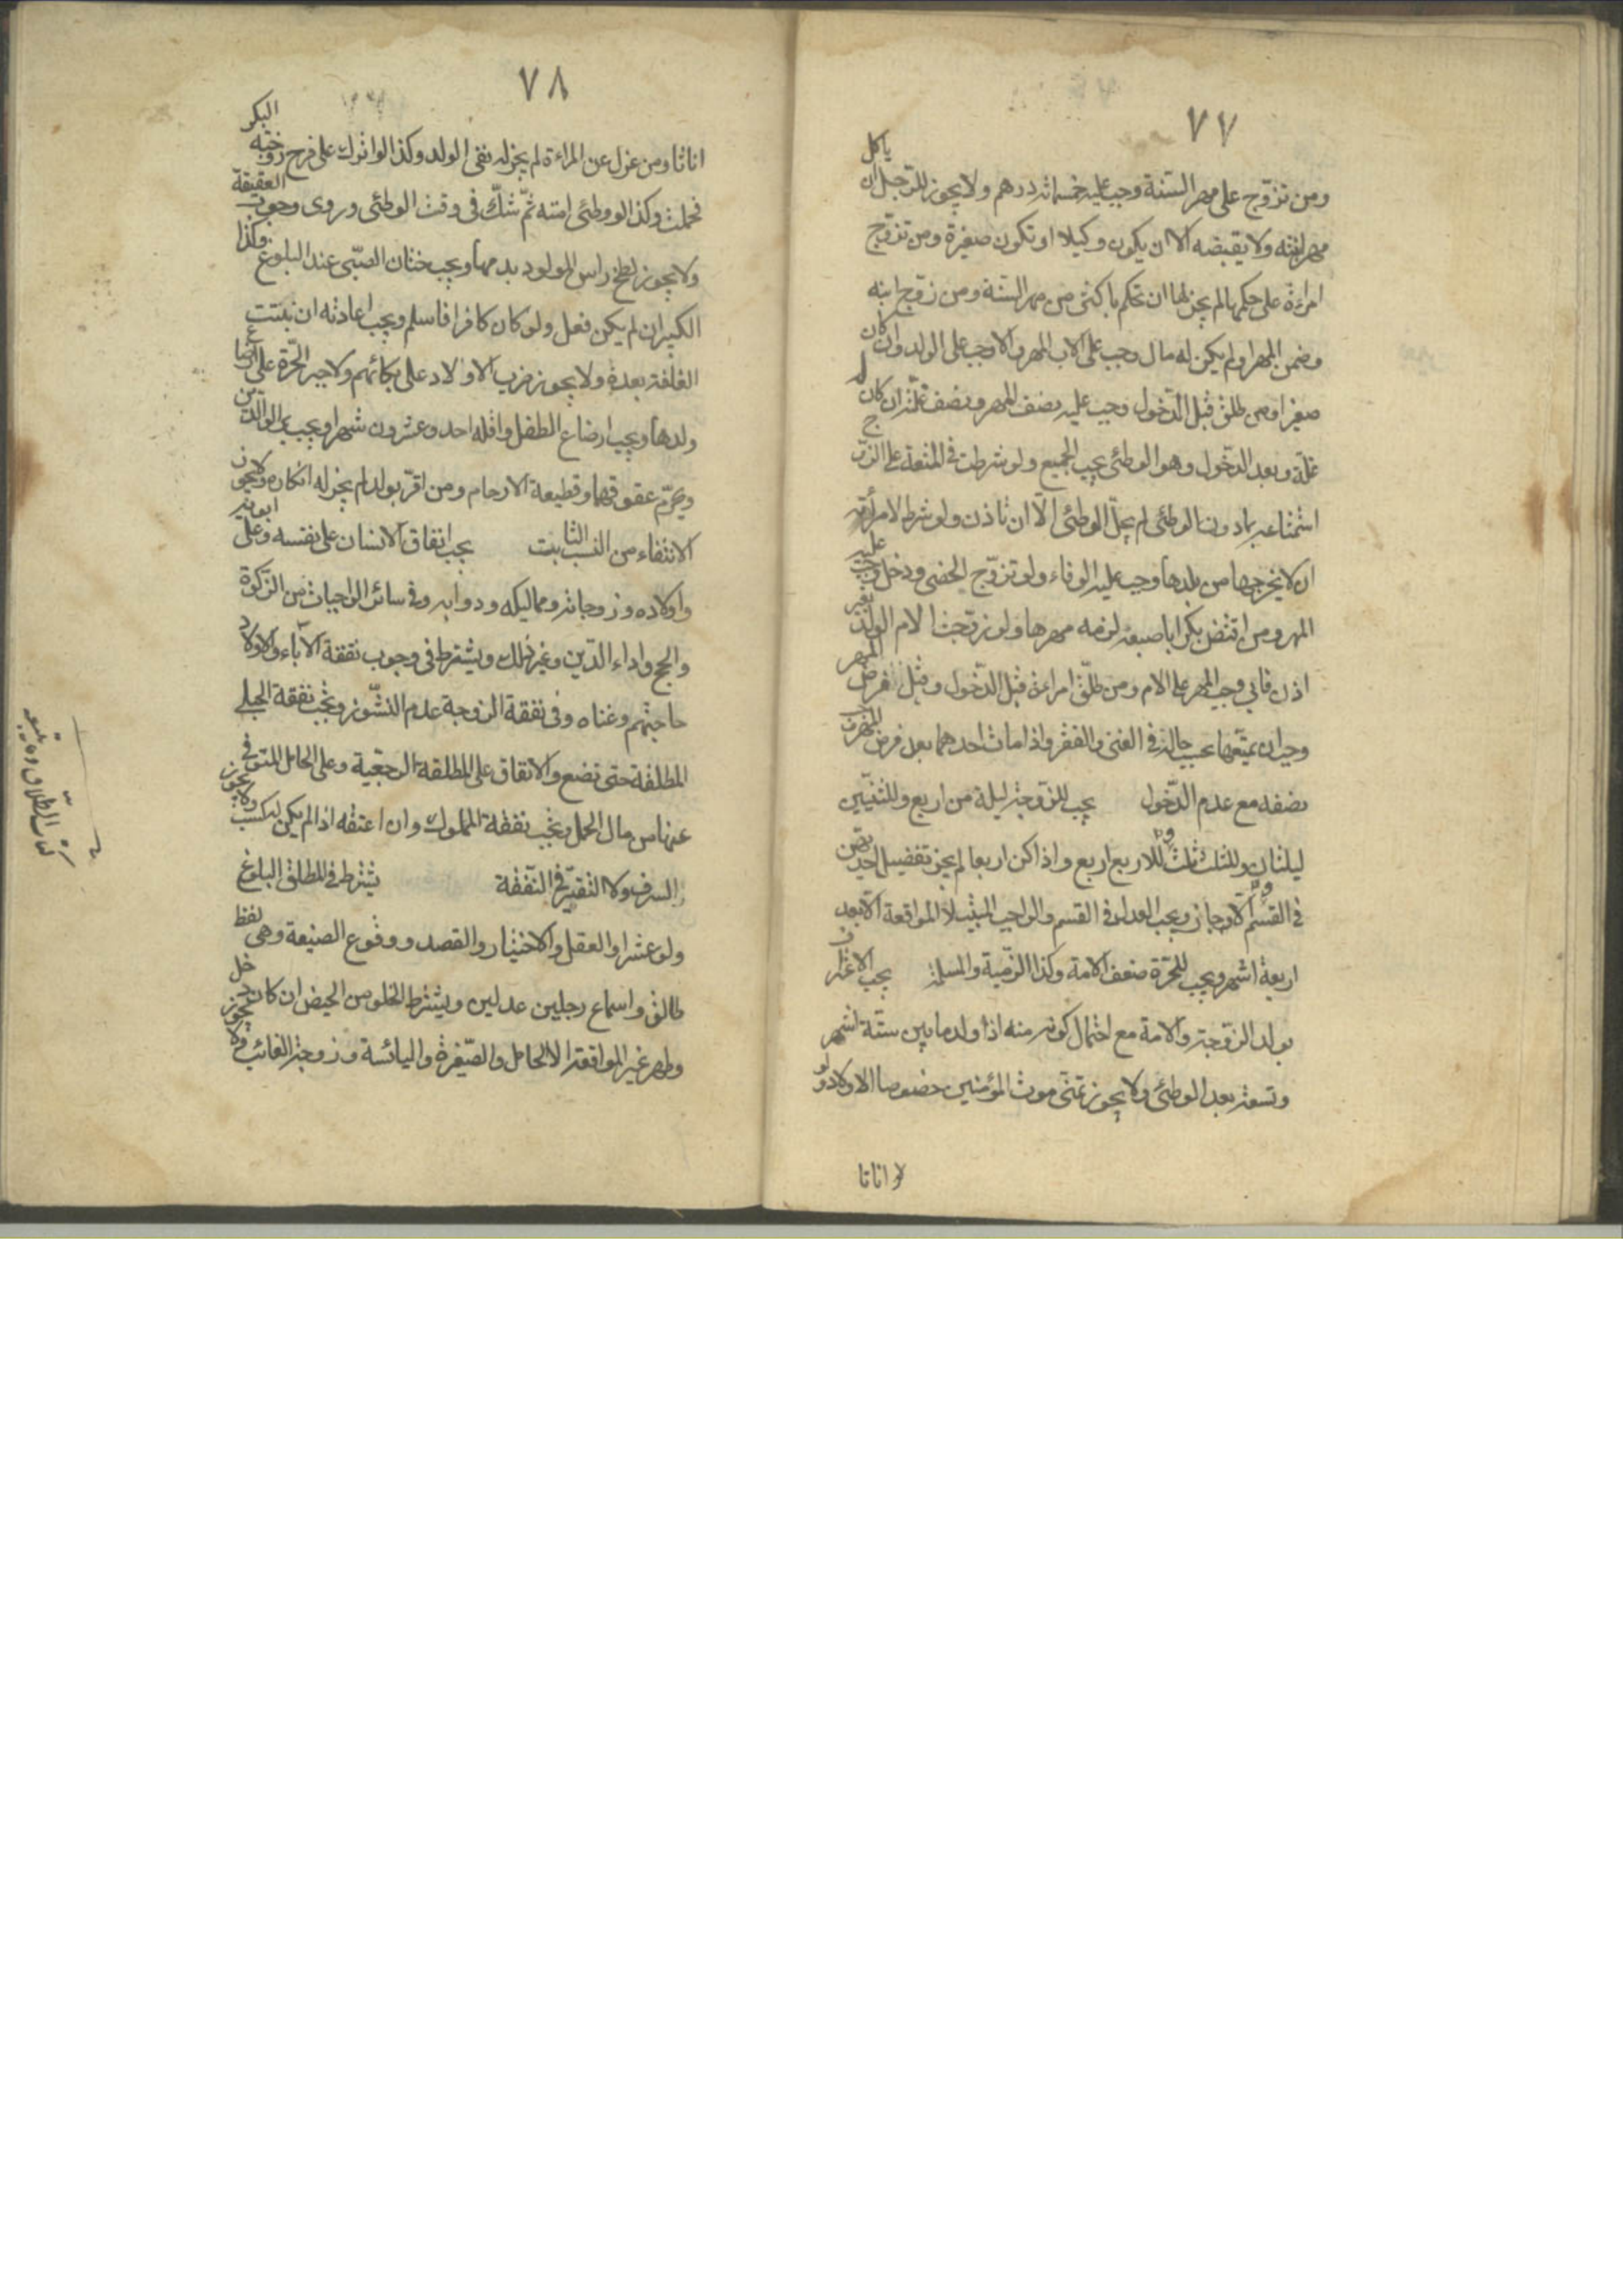 ٧٧
ومن تزوّج على مهر السّنة وجب عليه خمسمائة درهم ولا يجوز للرّجل ان ياكل
مهر ابنته ولا يقبضه الا ان يكون وكيلا او تكون صغيرة ومن تزوّج
امراءة على حكمها لم يجز لها ان تحكم باكثر من مهر السّنة ومن زوّج ابنه
وضمن المهر او لم يكن له مال وجب على الاب المهر والا وجب على الولد وان كان
صغيرا ومن طلق قبل الدّخول وجب عليه نصف المهر ونصف غلّته ان كان له
غلّة وبعد الدّخول وهو الوطئ يجب الجميع ولو شرطت في المتعة على الزوج
استمتاعه بما دون الوطئ لم يحلّ الوطئ الّا ان تاذن ولو شرط لامرأته
ان لا يخرجها من بلدها وجب عليه الوفاء ولو تزوّج الخصى ودخل وجب عليه
المهر ومن افتض بكرا باصبعه لزمه مهرها ولو زوّجت الام الولد بغير
اذن فابى وجب المهر على الام ومن طلّق امراءة قبل الدّخول وقبل فرض المهر
وجب ان يمتّعها بحسب حاله في الغنى والفقر واذا مات احدهما بعد فرض المهر
نصفه مع عدم الدّخول يجب للزّوجة ليلة من اربع وللثنتين
ليلتان وللثلث ثلث وللاربع اربع واذا كن اربعا لم يجز تفضيل احديهن
في القسم والّا جاز ويجب العدل في القسم والواجب المبيت لا المواقعة الّا بعد
اربعة اشهر ويجب للحرّة ضعف الامة وكذا الذمّية والمسلمة يجب الاعتراف
بولد الزّوجة والامة مع احتمال كونه منه اذا ولد ما بين ستّة اشهر
وتسعة بعد الوطئ ولا يجوز تمنّى موت المؤمنين خصوصا الاولاد ولو
اناثا
٧٨
اناثا ومن عزل عن المراءة لم يجز له نفى الولد وكذا لو انزل على فرج زوجته البكر
فحملت وكذا لو وطئ امته ثمّ شكّ في وقت الوطئ وروى وجوب العقيقة
ولا يجوز لطخ راس المولود بدمها ويجب ختان الصّبى عند البلوغ وكذا
الكبير ان لم يكن فعل ولو كان كافرا فاسلم ويجب اعادته ان نبتت
الغلفة بعده ولا يجوز ضرب الاولاد على بكائهم ولا جبر الحرّة على ارضاع
ولدها ويجب ارضاع الطفل واقله احد وعشرون شهرا ويجب برّ الوالدين
ويحرّم عقوقهما وقطيعة الارحام ومن اقرّ بولد لم يجز له انكاره ولا يجوز
الانتفاء من النّسب الثابت يجب انفاق الانسان على نفسه وعلى ابويه
واولاده وزوجاته ومماليكه ودوابه وفي سائر الواجبات من الزّكوة
والحج واداء الدّين وغير ذلك ويشترط في وجوب نفقة الآباء والاولاد
حاجتهم وغناه وفى نفقة الزوجة عدم النّشوز وتجب نفقة الحبلى
المطلقة حتى تضع والانفاق على المطلقة الرجعيّة وعلى الحامل المتوفى
عنها من مال الحمل وتجب نفقة المملوك وان اعتقه اذا لم يكن له كسب ولا يجوز
السرف ولا التقتير في النّفقة يشترط في المطلق البلوغ
ولو عشرا والعقل والاختيار والقصد ووقوع الصّيغة وهى لفظ
طالق واسماع رجلين عدلين ويشترط الخلو من الحيض ان كان دخل
وطهر غير المواقعة الا الحامل والصّغيرة واليائسة وزوجة الغائب ولا يجوز